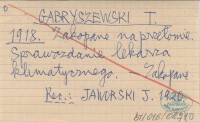 GABRYSZEWSKI T.
1918. Zakopane na przełomie.
Sprawozdanie lekarza
klimatycznego. – Zakopane
Rec.: JAWORSKI J. 1920